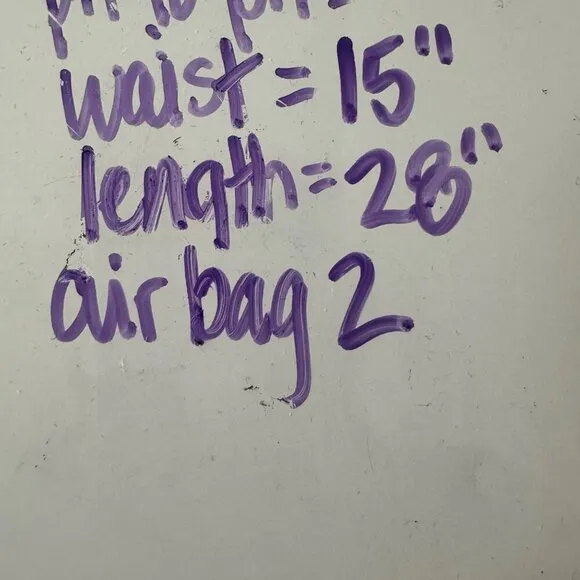 waist = 15"
length = 28"
air bag 2